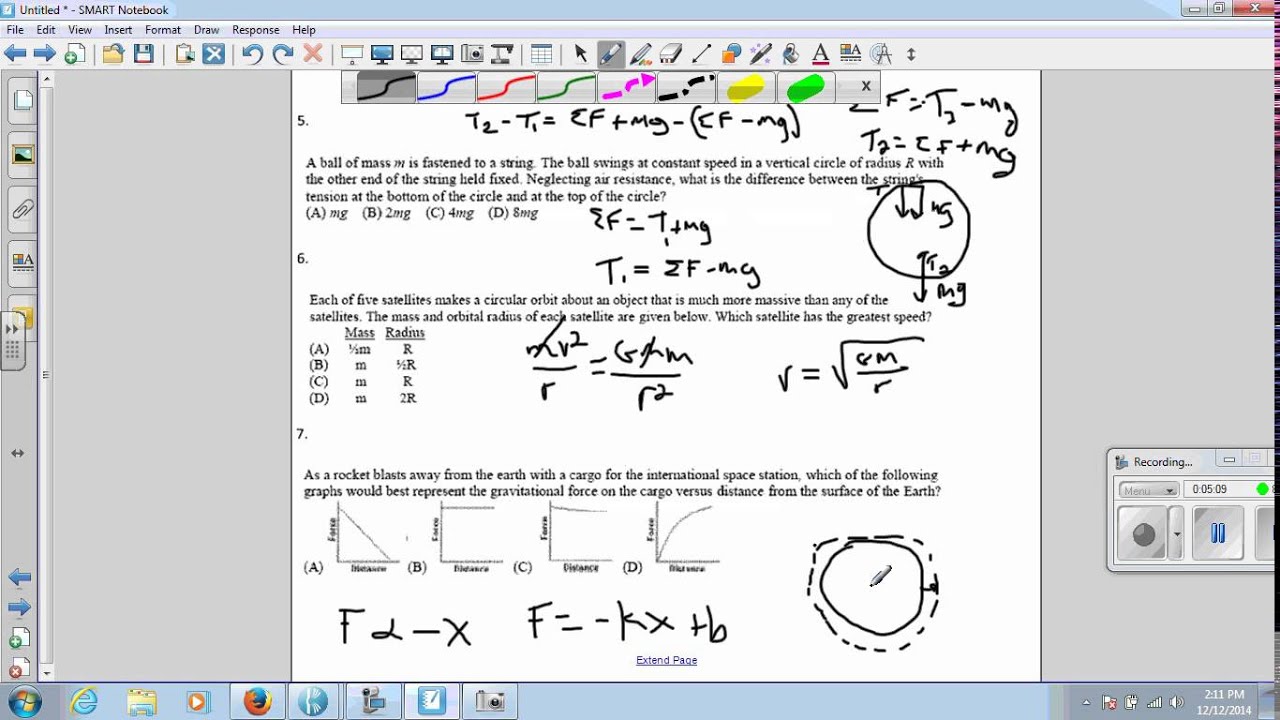 Untitled * - SMART Notebook
File Edit View Insert Format Draw Response Help
x
5.
T₂ - T₁ = ΣF + mg - (ΣF - mg)
ΣF = T₂ - mg
T₂ = ΣF + mg
A ball of mass m is fastened to a string. The ball swings at constant speed in a vertical circle of radius R with
the other end of the string held fixed. Neglecting air resistance, what is the difference between the string's
tension at the bottom of the circle and at the top of the circle?
(A) mg (B) 2mg (C) 4mg (D) 8mg
ΣF = T₁ + mg
T₁ = ΣF - mg
T mg
T₂
mg
6.
Each of five satellites makes a circular orbit about an object that is much more massive than any of the
satellites. The mass and orbital radius of each satellite are given below. Which satellite has the greatest speed?
Mass Radius
(A) ½m R
(B) m ½R
(C) m R
(D) m 2R
mv²/r = Gmm/r²
v = √(Gm/r)
7.
As a rocket blasts away from the earth with a cargo for the international space station, which of the following
graphs would best represent the gravitational force on the cargo versus distance from the surface of the Earth?
Force Force Force Force
(A) Distance (B) Distance (C) Distance (D) Distance
F α - x F = - kx + b
Extend Page
Recording...
Menu 0:05:09
2:11 PM
12/12/2014